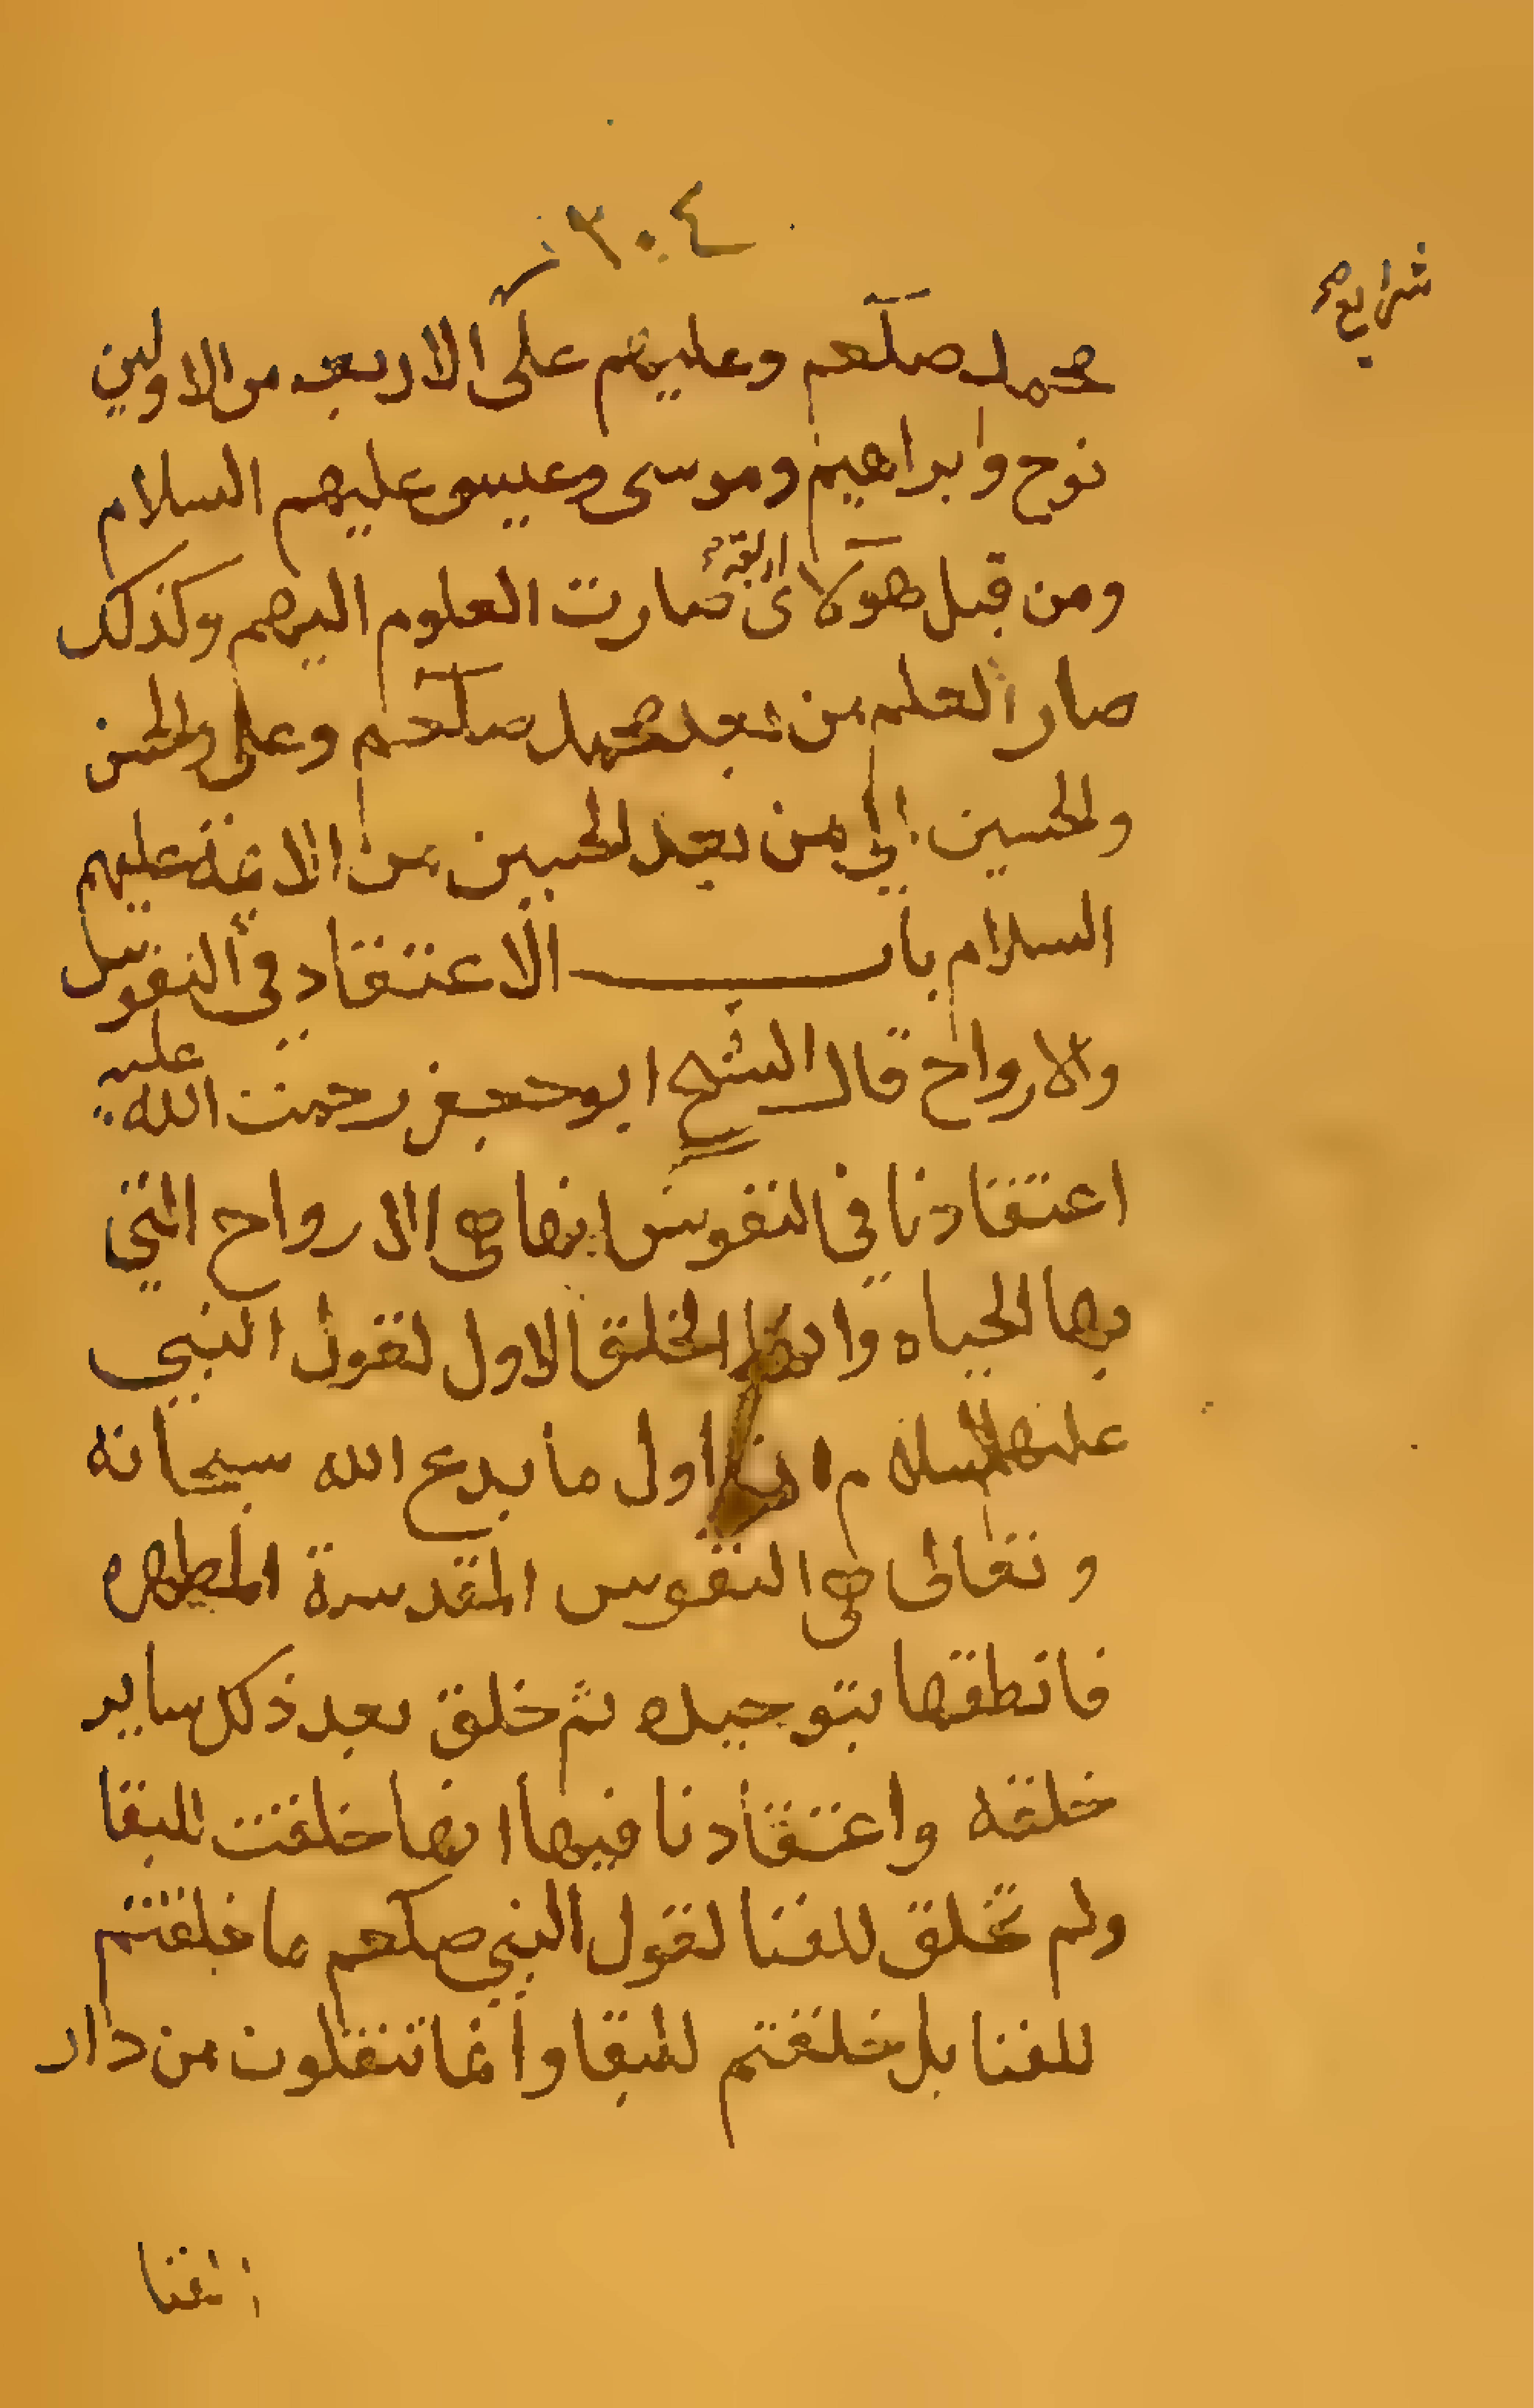 ٣٠٤
شرايع
محمد صلعم وعليهم على الاربعه من الاولين
نوح وابراهيم وموسى وعيسى عليهم السلام
ومن قبل هولاى اربعة صارت العلوم اليهم وكذلك
صار العلم من بعد محمد صلعم وعلى والحسن
والحسين الى من بعد الحسين من الائمة عليهم
السلام باب الاعتقاد في النفوس
والارواح قال الشيخ ابو جعفر رحمت الله عليه
اعتقادنا في النفوس انها هي الارواح التي
بها الحياه وانها الخلق الاول لقول النبي
عليه السلام ان اول ما بدع الله سبحانه
وتعالى هي النفوس المقدسة المطهره
فانطقها بتوحيده ثم خلق بعد ذلك ساير
خلقه واعتقادنا فيها انها خلقت للبقا
ولم تخلق للفنا لقول النبي صلعم ما خلقتم
للفنا بل خلقتم للبقا وانما تنقلون من دار
الفنا